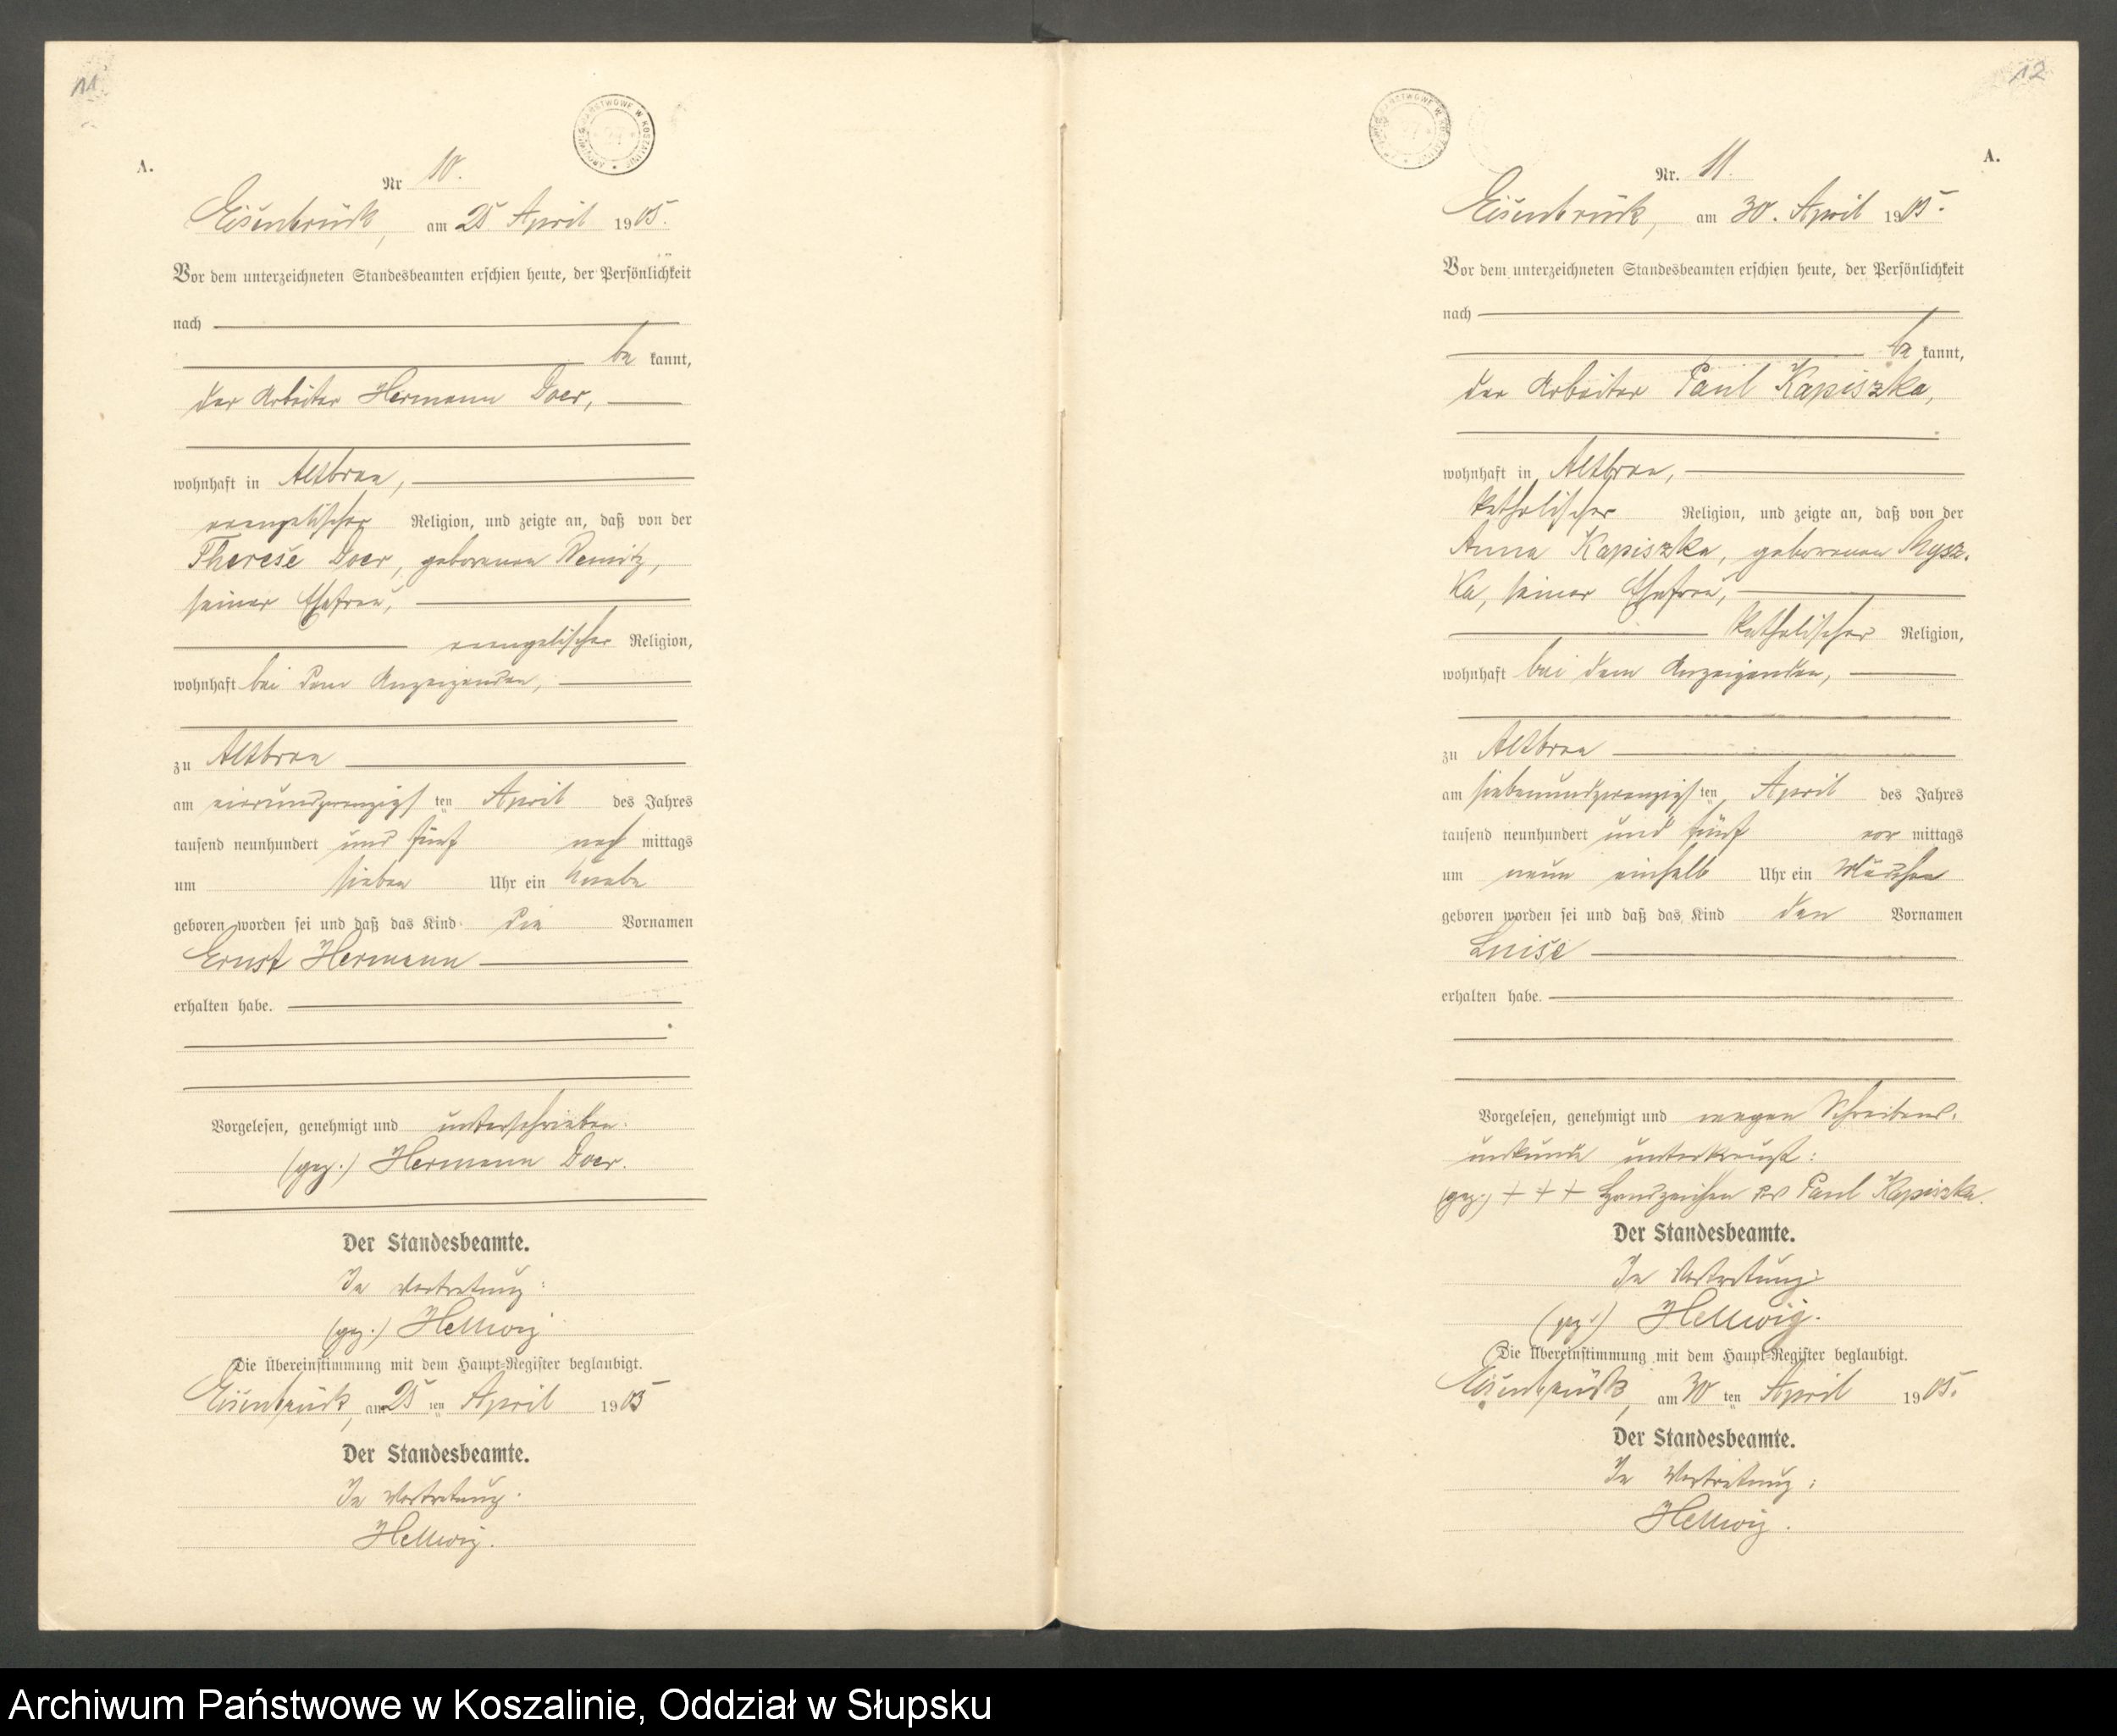 11
ARCHIWUM PAŃSTWOWE W KOSZALINIE
A.
Nr 10.
Eisenbrück, am 25 April 1905.
Vor dem unterzeichneten Standesbeamten erschien heute, der Persönlichkeit
nach
be kannt,
der Arbeiter Hermann Doer,
wohnhaft in Altbraa,
evangelischer Religion, und zeigte an, daß von der
Therese Doer, geborenen Remitz,
seiner Ehefrau,
evangelischer Religion,
wohnhaft bei dem Anzeigenden,
zu Altbraa
am vierundzwanzigsten April des Jahres
tausend neunhundert und fünf nach mittags
um sieben Uhr ein Knabe
geboren worden sei und daß das Kind die Vornamen
Ernst Hermann
erhalten habe.
Vorgelesen, genehmigt und unterschrieben.
(gez.) Hermann Doer.
Der Standesbeamte.
In Vertretung:
(gez.) Hellwig
Die Übereinstimmung mit dem Haupt-Register beglaubigt.
Eisenbrück, am 25 ten April 1905
Der Standesbeamte.
In Vertretung.
Hellwig.
12
A.
Nr. 11.
Eisenbrück, am 30. April 1905.
Vor dem unterzeichneten Standesbeamten erschien heute, der Persönlichkeit
nach
be kannt,
der Arbeiter Paul Kapiszka,
wohnhaft in Altbraa,
katholischer Religion, und zeigte an, daß von der
Anna Kapiszka, geborenen Mysz-
ka, seiner Ehefrau,
katholischer Religion,
wohnhaft bei dem Anzeigenden,
zu Altbraa
am siebenundzwanzigsten April des Jahres
tausend neunhundert und fünf vor mittags
um neun einhalb Uhr ein Mädchen
geboren worden sei und daß das Kind den Vornamen
Luise
erhalten habe.
Vorgelesen, genehmigt und wegen Schreibens-
unkunde unterkreuzt:
(gez.) + + + Handzeichen des Paul Kapiszka.
Der Standesbeamte.
In Vertretung:
(gez.) Hellwig.
Die Übereinstimmung mit dem Haupt-Register beglaubigt.
Eisenbrück, am 30 ten April 1905.
Der Standesbeamte.
In Vertretung:
Hellwig.
Archiwum Państwowe w Koszalinie, Oddział w Słupsku